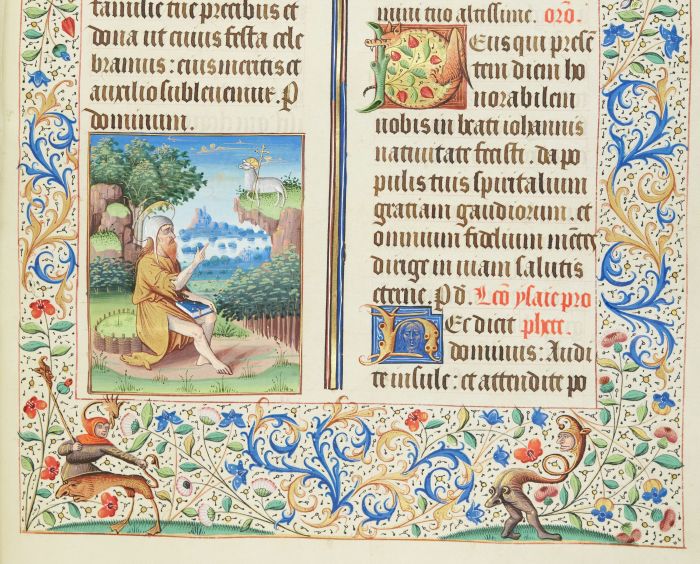 familie tue precibus et
dona ut cuius festa cele
bramus : eius meritis et
auxilio subleuemur. P
dominum.
mini tuo altissime. oro.
Deus qui presen
tem diem ho
norabilem
nobis in beati iohannis
natiuitate fecisti . da po
pulis tuis spiritalium
gratiam gaudiorum. et
omnium fidelium mentes
dirige in uiam salutis
eterne. P d. Lcō ysaie pro
Hec dicit phete.
dominus : Audi
te insule : et attendite po